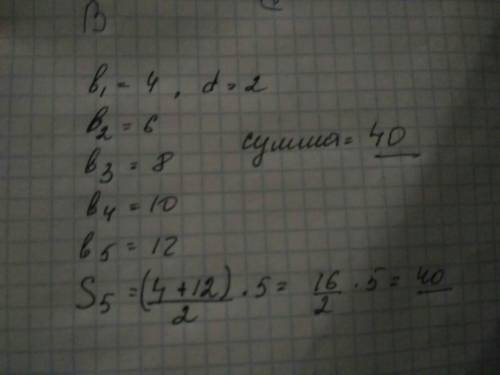 В
b₁ = 4, d = 2
b₂ = 6
сумма = 40
b₃ = 8
b₄ = 10
b₅ = 12
S₅ = (4+12)/2 · 5 = 16/2 · 5 = 40